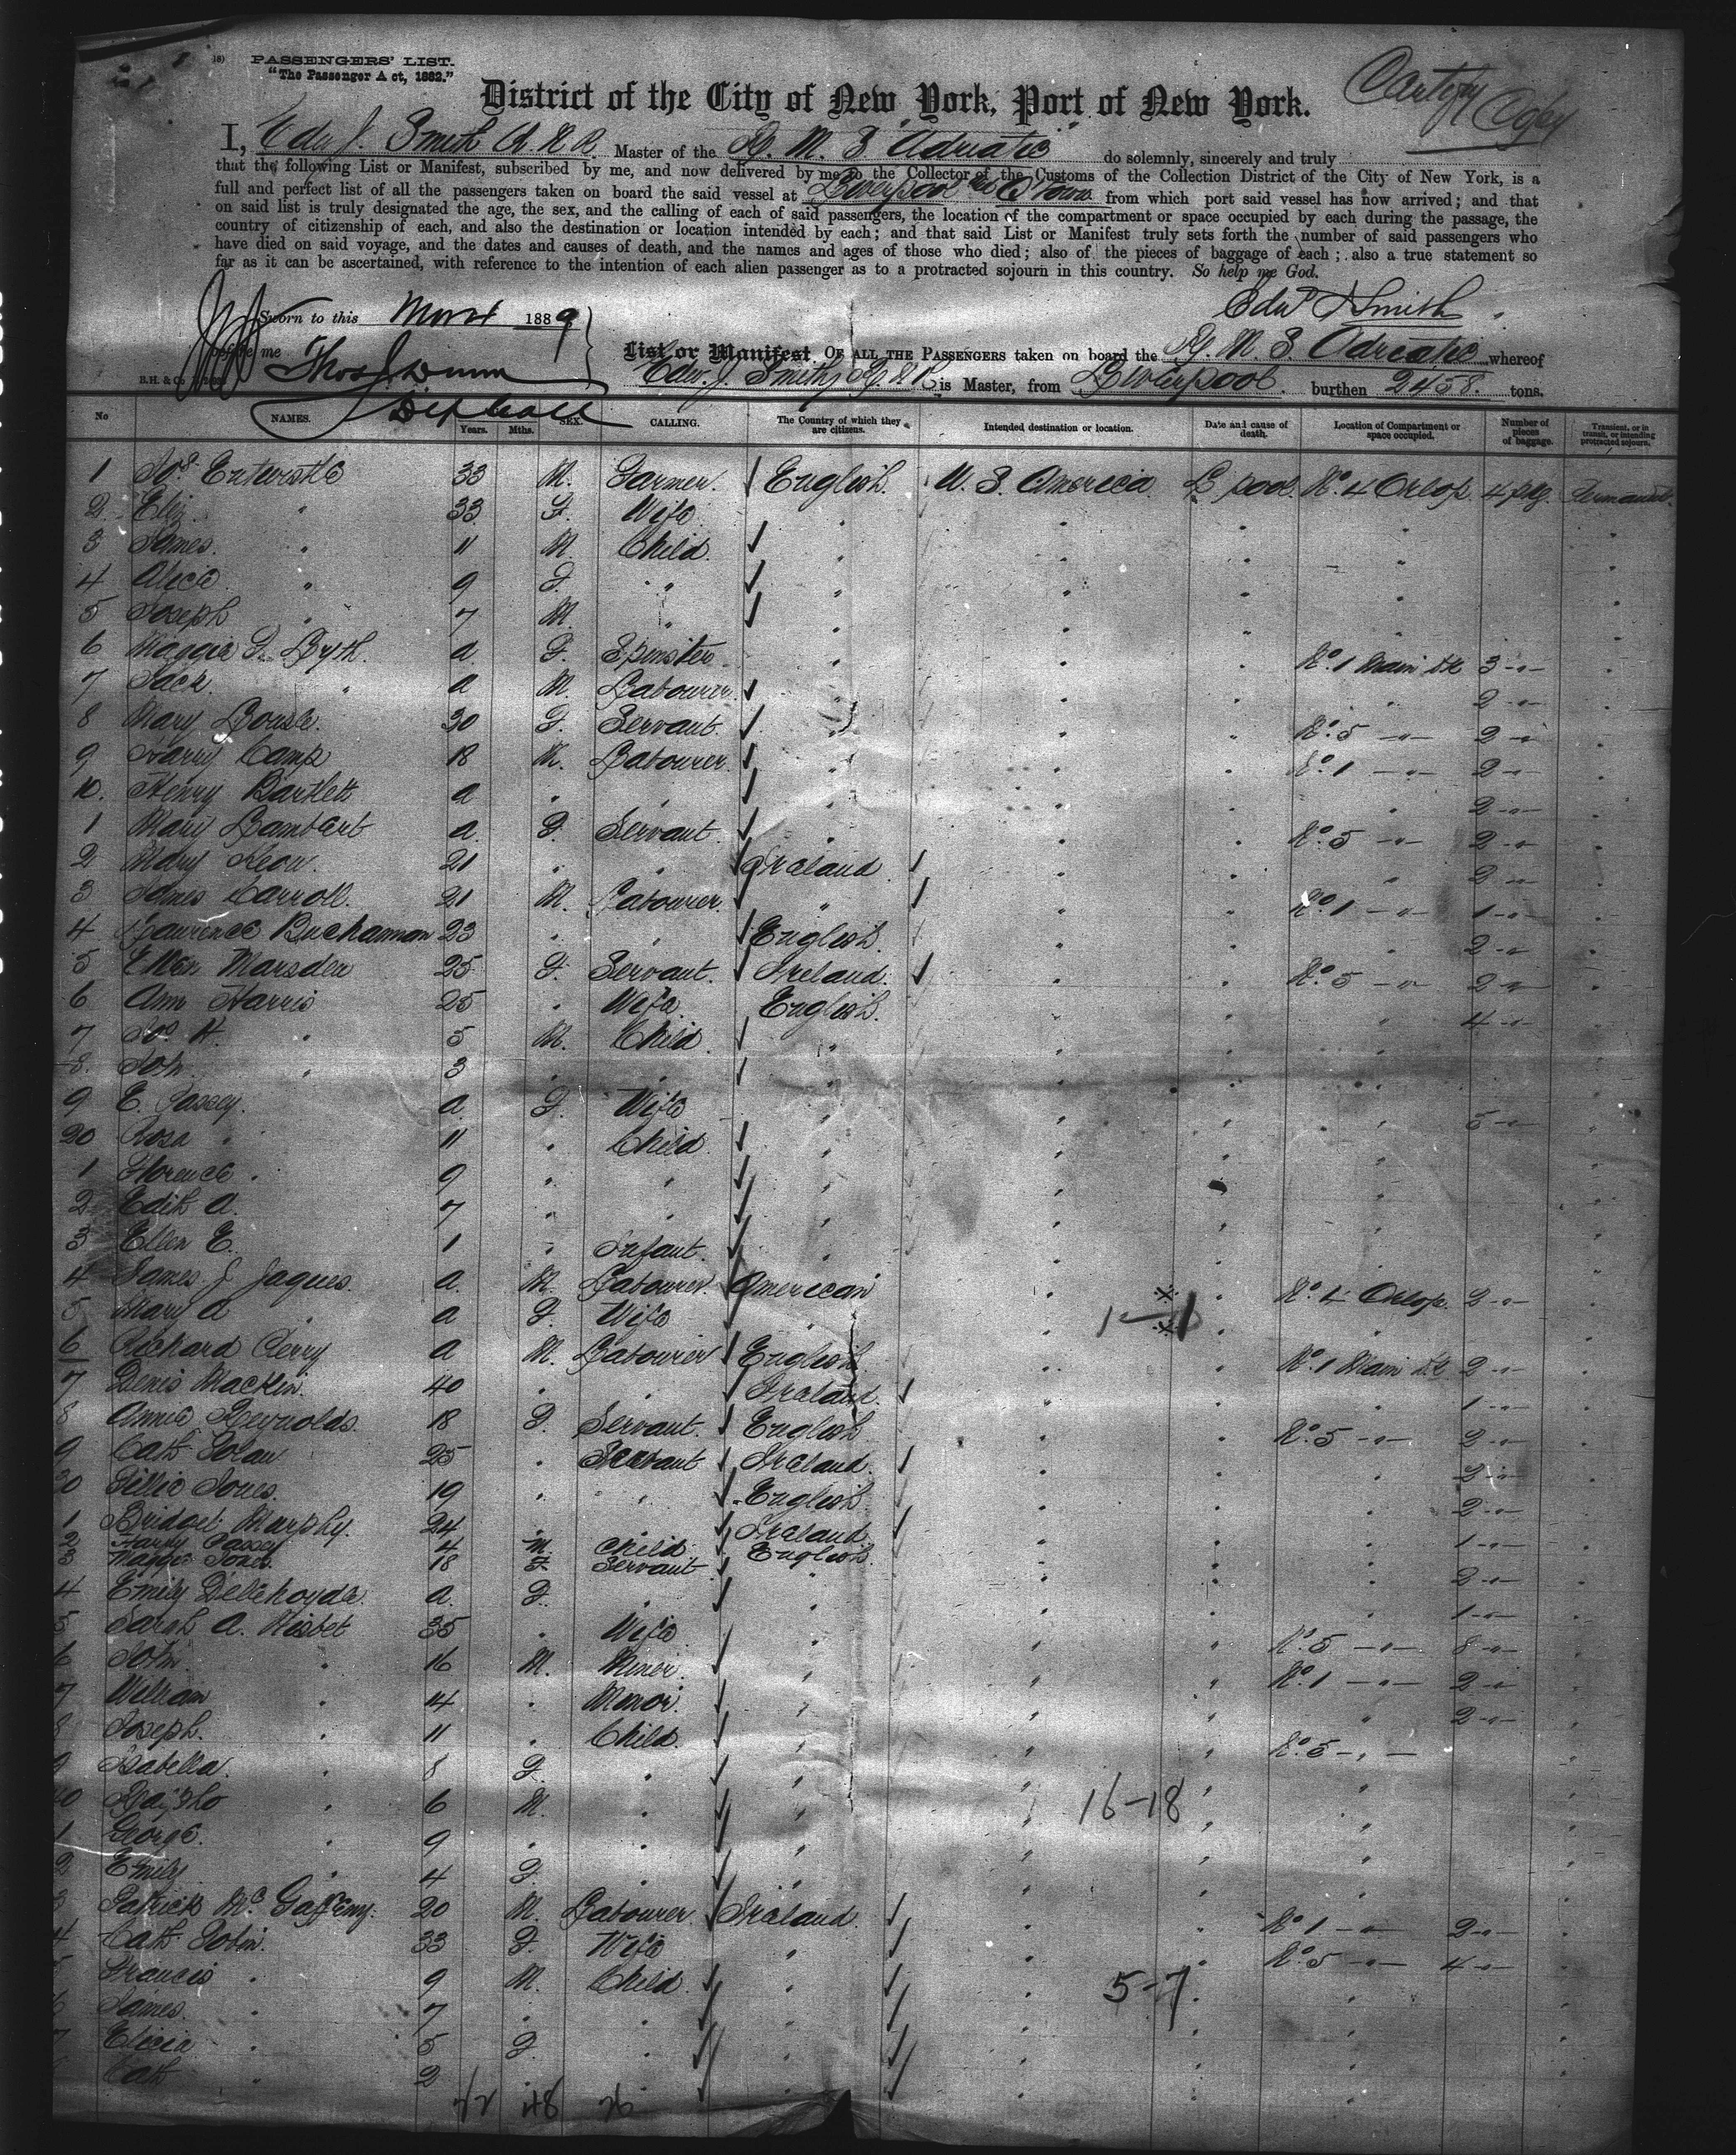 18) PASSENGERS' LIST.
"The Passenger Act, 1882."
District of the City of New York, Port of New York.
I, Edw J. Smith R.N.R. Master of the R. M. S "Adriatic" do solemnly, sincerely and truly
that the following List or Manifest, subscribed by me, and now delivered by me to the Collector of the Customs of the Collection District of the City of New York, is a
full and perfect list of all the passengers taken on board the said vessel at Liverpool & Q Town from which port said vessel has now arrived; and that
on said list is truly designated the age, the sex, and the calling of each of said passengers, the location of the compartment or space occupied by each during the passage, the
country of citizenship of each, and also the destination or location intended by each; and that said List or Manifest truly sets forth the number of said passengers who
have died on said voyage, and the dates and causes of death, and the names and ages of those who died; also of the pieces of baggage of each; also a true statement so
far as it can be ascertained, with reference to the intention of each alien passenger as to a protracted sojourn in this country. So help me God.
Edw J Smith
Sworn to this 1889
before me Thos J Dunn
List or Manifest OF ALL THE PASSENGERS taken on board the R. M. S. Adriatic whereof
Edw. J. Smith R N R is Master, from Liverpool burthen 2458 tons.
No NAMES. Years. Mths. SEX. CALLING. The Country of which they are citizens. Intended destination or location. Date and cause of death. Location of Compartment or space occupied. Number of pieces of baggage. Transient, or in transit, or intending protracted sojourn.
1 Jos. Entwistle 33 M. Farmer. English. U. S. America L'pool. No. 4 Orlop 4 pkg.
2 Eliz. " 33 F. Wife "
3 James. " 11 M. Child. "
4 Alice " 9 F. " "
5 Joseph " 7 M. " "
6 Maggie F. Byth. a F. Spinster " No. 1 Main Dk 3 -"-
7 Jack " a M. Labourer. " " 2 -"-
8 Mary Bousle. 30 F. Servant. " No. 5 -"- 2 -"-
9 Harry Camp 18 M. Labourer. " No. 1 -"- 2 -"-
10. Henry Bartlett a " " " " 2 -"-
1 Mary Lambert a. F. Servant. " No. 5 -"- 2 -"-
2 Mary Keon. 21 " " Ireland " 2 -"-
3 James Carroll. 21 M. Labourer. " No. 1 -"- 1 -"-
4 Laurence Buchannan 23 " " English. " 2 -"-
5 Ellen Marsden 25 F. Servant. Ireland. No. 5 -"- 2 -"-
6 Ann Harris 25 " Wife. English. " 4 -"-
7 Jos H. " 5 M. Child. "
8. John " 3 " " "
9 E. Passey. a F. Wife " 5 -"-
20 Rosa " 11 " Child. "
1 Florence " 9 " " "
2 Edith A. 7 " " "
3 Ellen E. 1 " Infant. "
4 James J Jaques. a. M. Labourer. American No. 4 Orlop. 2 -"-
5 Mary A " a F. Wife " 1-1
6 Richard Perry a M. Labourer English No. 1 Main Dk 2 -"-
7 Denis Macklin. 40 " " Ireland. " 1 -"-
8 Annie Reynolds. 18 F. Servant. English No. 5 -"- 2 -"-
9 Cath Dolan 25 " Servant Ireland. " 2 -"-
30 Lillie Jones. 19 " " English " 2 -"-
1 Bridget Murphy. 24 " " Ireland " 1 -"-
2 Harry Passey 4 M. Child English.
3 Maggie Jones. 18 F. Servant " " 2 -"-
4 Emily Delahoyde. a. F. " " " 1 -"-
5 Sarah A. Nisbet 35 " Wife " No. 5 -"- 8 -"-
6 John " 16 M. Miner. " No. 1 -"- 2 -"-
7 William " 14 " Minor. " " 2 -"-
8 Joseph. " 11 " Child. " No. 5 -"-
9 Isabella. " 8 F. " "
40 " 6 M. " " 16-18
1 George. " 9 " " "
2 Emily " 4 F. " "
3 Patrick Mc Gaffeny. 20 M. Labourer Ireland. No. 1 -"- 2 -"-
4 Cath Tobin. 33 F. Wife " No. 5 -"- 4 -"-
5 Francis " 9 M. Child. " 5-7
6 James. " 7 " " "
7 Elicia " 5 F. " "
Cath " 2 " " "
48 26